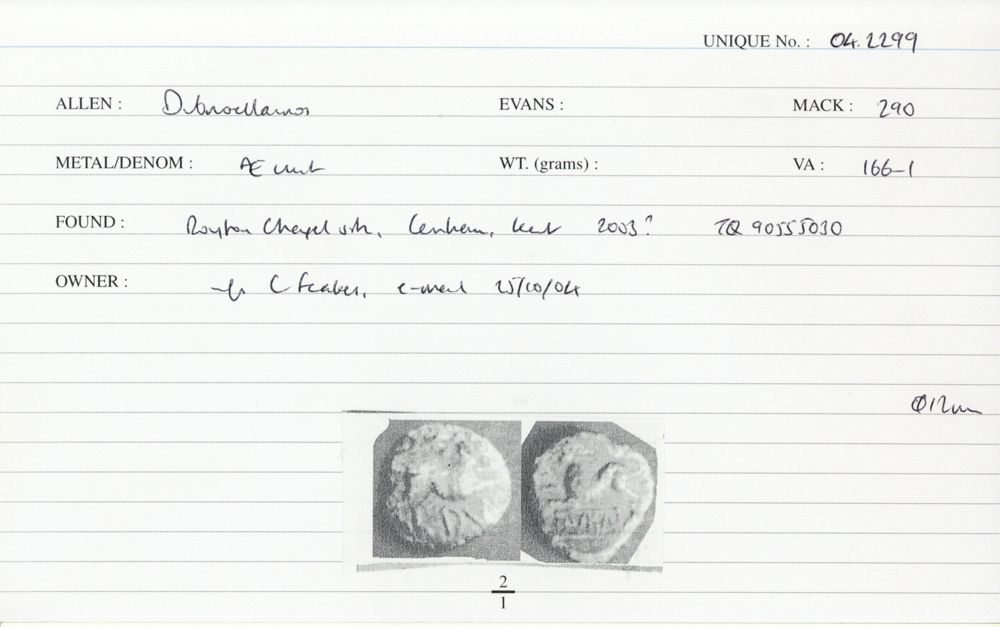 UNIQUE No. : 04.2299
ALLEN : Dubnovellaunos EVANS : MACK : 290
METAL/DENOM : Æ unit WT. (grams) : VA : 166-1
FOUND : Royton Chapel site, Lenham, Kent 2003? TQ 90555030
OWNER : C Feaber, e-mail 25/10/04
Ø12mm
2
1